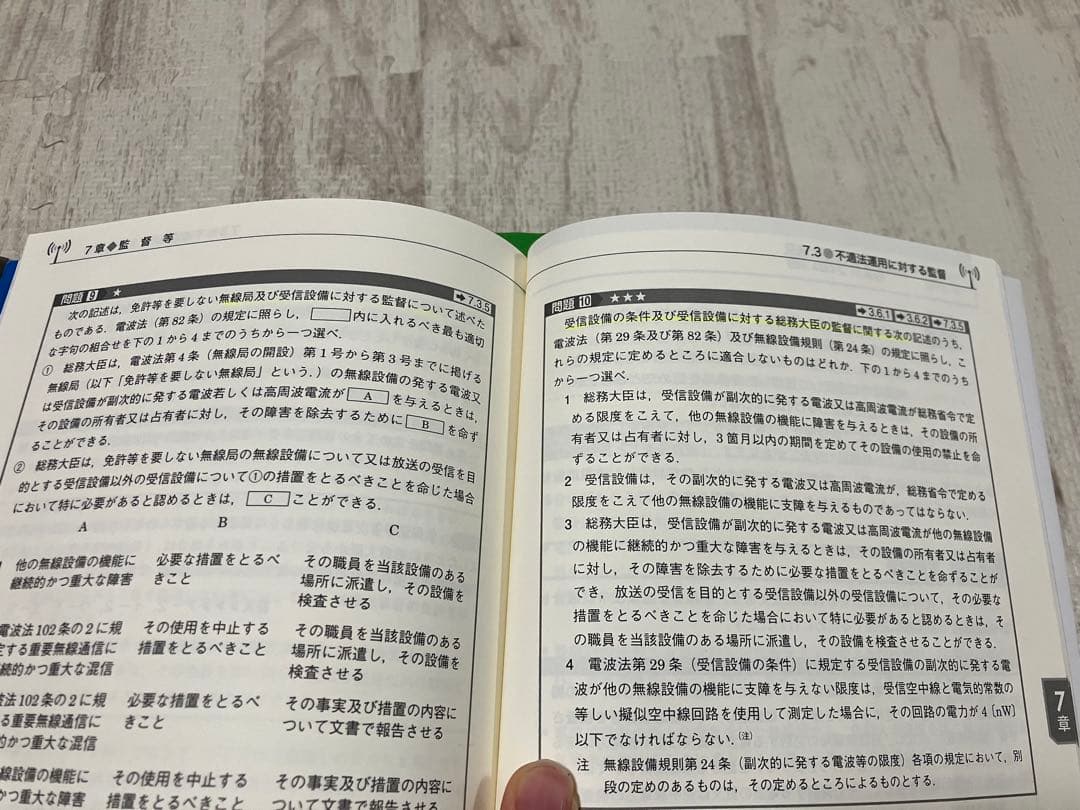 7章◆監督等
問題9 ★ ➡7.3.5
次の記述は，免許等を要しない無線局及び受信設備に対する監督について述べた
ものである．電波法（第82条）の規定に照らし，　　内に入れるべき最も適切
な字句の組合せを下の1から4までのうちから一つ選べ．
① 総務大臣は，電波法第4条（無線局の開設）第1号から第3号までに掲げる
無線局（以下「免許等を要しない無線局」という．）の無線設備の発する電波又
は受信設備が副次的に発する電波若しくは高周波電流が A を与えるときは，
その設備の所有者又は占有者に対し，その障害を除去するために B を命ず
ることができる．
② 総務大臣は，免許等を要しない無線局の無線設備について又は放送の受信を目
的とする受信設備以外の受信設備について①の措置をとるべきことを命じた場合
において特に必要があると認めるときは， C ことができる．
A B C
他の無線設備の機能に 必要な措置をとるべ その職員を当該設備のある
継続的かつ重大な障害 きこと 場所に派遣し，その設備を
検査させる
電波法102条の2に規 その使用を中止する その職員を当該設備のある
定する重要無線通信に 措置をとるべきこと 場所に派遣し，その設備を
続的かつ重大な混信 検査させる
法102条の2に規 必要な措置をとるべ その事実及び措置の内容に
る重要無線通信に きこと ついて文書で報告させる
的かつ重大な混信
線設備の機能に その使用を中止する その事実及び措置の内容に
かつ重大な障害 措置をとるべきこと ついて文書で報告させる
7.3●不適法運用に対する監督
問題10 ★★★ ➡3.6.1 ➡3.6.2 ➡7.3.5
受信設備の条件及び受信設備に対する総務大臣の監督に関する次の記述のうち，
電波法（第29条及び第82条）及び無線設備規則（第24条）の規定に照らし，こ
れらの規定に定めるところに適合しないものはどれか．下の1から4までのうち
から一つ選べ．
1 総務大臣は，受信設備が副次的に発する電波又は高周波電流が総務省令で定
める限度をこえて，他の無線設備の機能に障害を与えるときは，その設備の所
有者又は占有者に対し，3箇月以内の期間を定めてその設備の使用の禁止を命
ずることができる．
2 受信設備は，その副次的に発する電波又は高周波電流が，総務省令で定める
限度をこえて他の無線設備の機能に支障を与えるものであってはならない．
3 総務大臣は，受信設備が副次的に発する電波又は高周波電流が他の無線設備
の機能に継続的かつ重大な障害を与えるときは，その設備の所有者又は占有者
に対し，その障害を除去するために必要な措置をとるべきことを命ずることが
でき，放送の受信を目的とする受信設備以外の受信設備について，その必要な
措置をとるべきことを命じた場合において特に必要があると認めるときは，そ
の職員を当該設備のある場所に派遣し，その設備を検査させることができる．
4 電波法第29条（受信設備の条件）に規定する受信設備の副次的に発する電
波が他の無線設備の機能に支障を与えない限度は，受信空中線と電気的常数の
等しい擬似空中線回路を使用して測定した場合に，その回路の電力が4〔nW〕
以下でなければならない．(注)
注 無線設備規則第24条（副次的に発する電波等の限度）各項の規定において，別
段の定めのあるものは，その定めるところによるものとする．
7
章